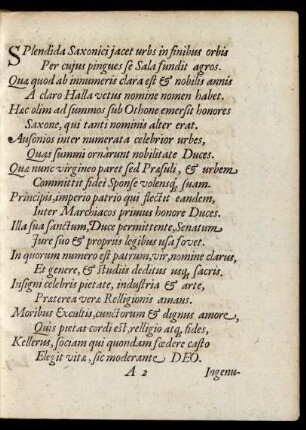 SPlendida Saxonici jacet urbs in finibus orbis
Per cujus pingues se Sala fundit agros.
Quæ quod ab innumeris clara est & nobilis annis
A claro Halla vetus nomine nomen habet.
Hæc olim ad summos sub Othone emersit honores
Saxone, qui tanti nominis alter erat.
Ausonios inter numerata celebrior urbes,
Quas summi ornârunt nobilitate Duces.
Quæ nunc virgineo paret sed Præsuli, & urbem
Committit fidei Sponse volensq́ suam.
Principis, imperio patrio qui flectit eandem,
Inter Marchiacos primus honore Duces.
Illa sua sanctum, Duce permittente, Senatum
Jure suo & propriis legibus usa fovet.
In quorum numero est patrum, vir, nomine clarus,
Et genere, & studiis deditus usq́ sacris.
Insigni celebris pietate, industria & arte,
Præterea veræ Relligionis amans.
Moribus Excultis, cunctorum & dignus amore,
Quis pietas cordi est, relligio atq́, fides,
Kellerus, sociam qui quondam fœdere casto
Elegit vitæ, sic moderante DEO.
A 2 Ingenu-